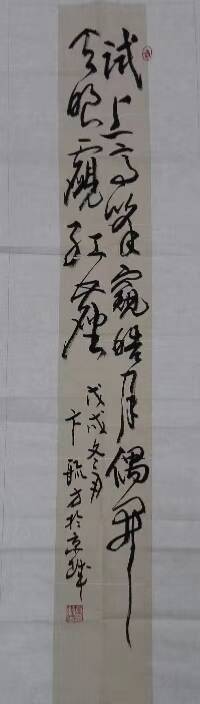 试上高峰窥皓月偶开
天眼觑红尘
戊戌冬月
卞毓方於京城